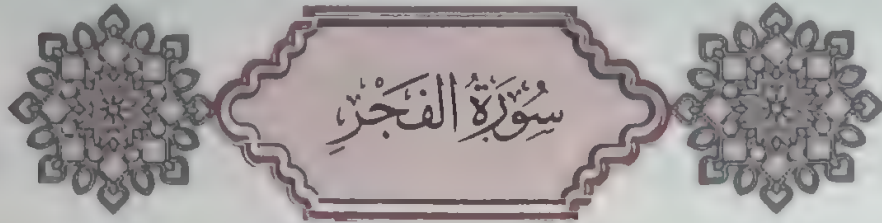 سُورَةُ الفَجْرِ